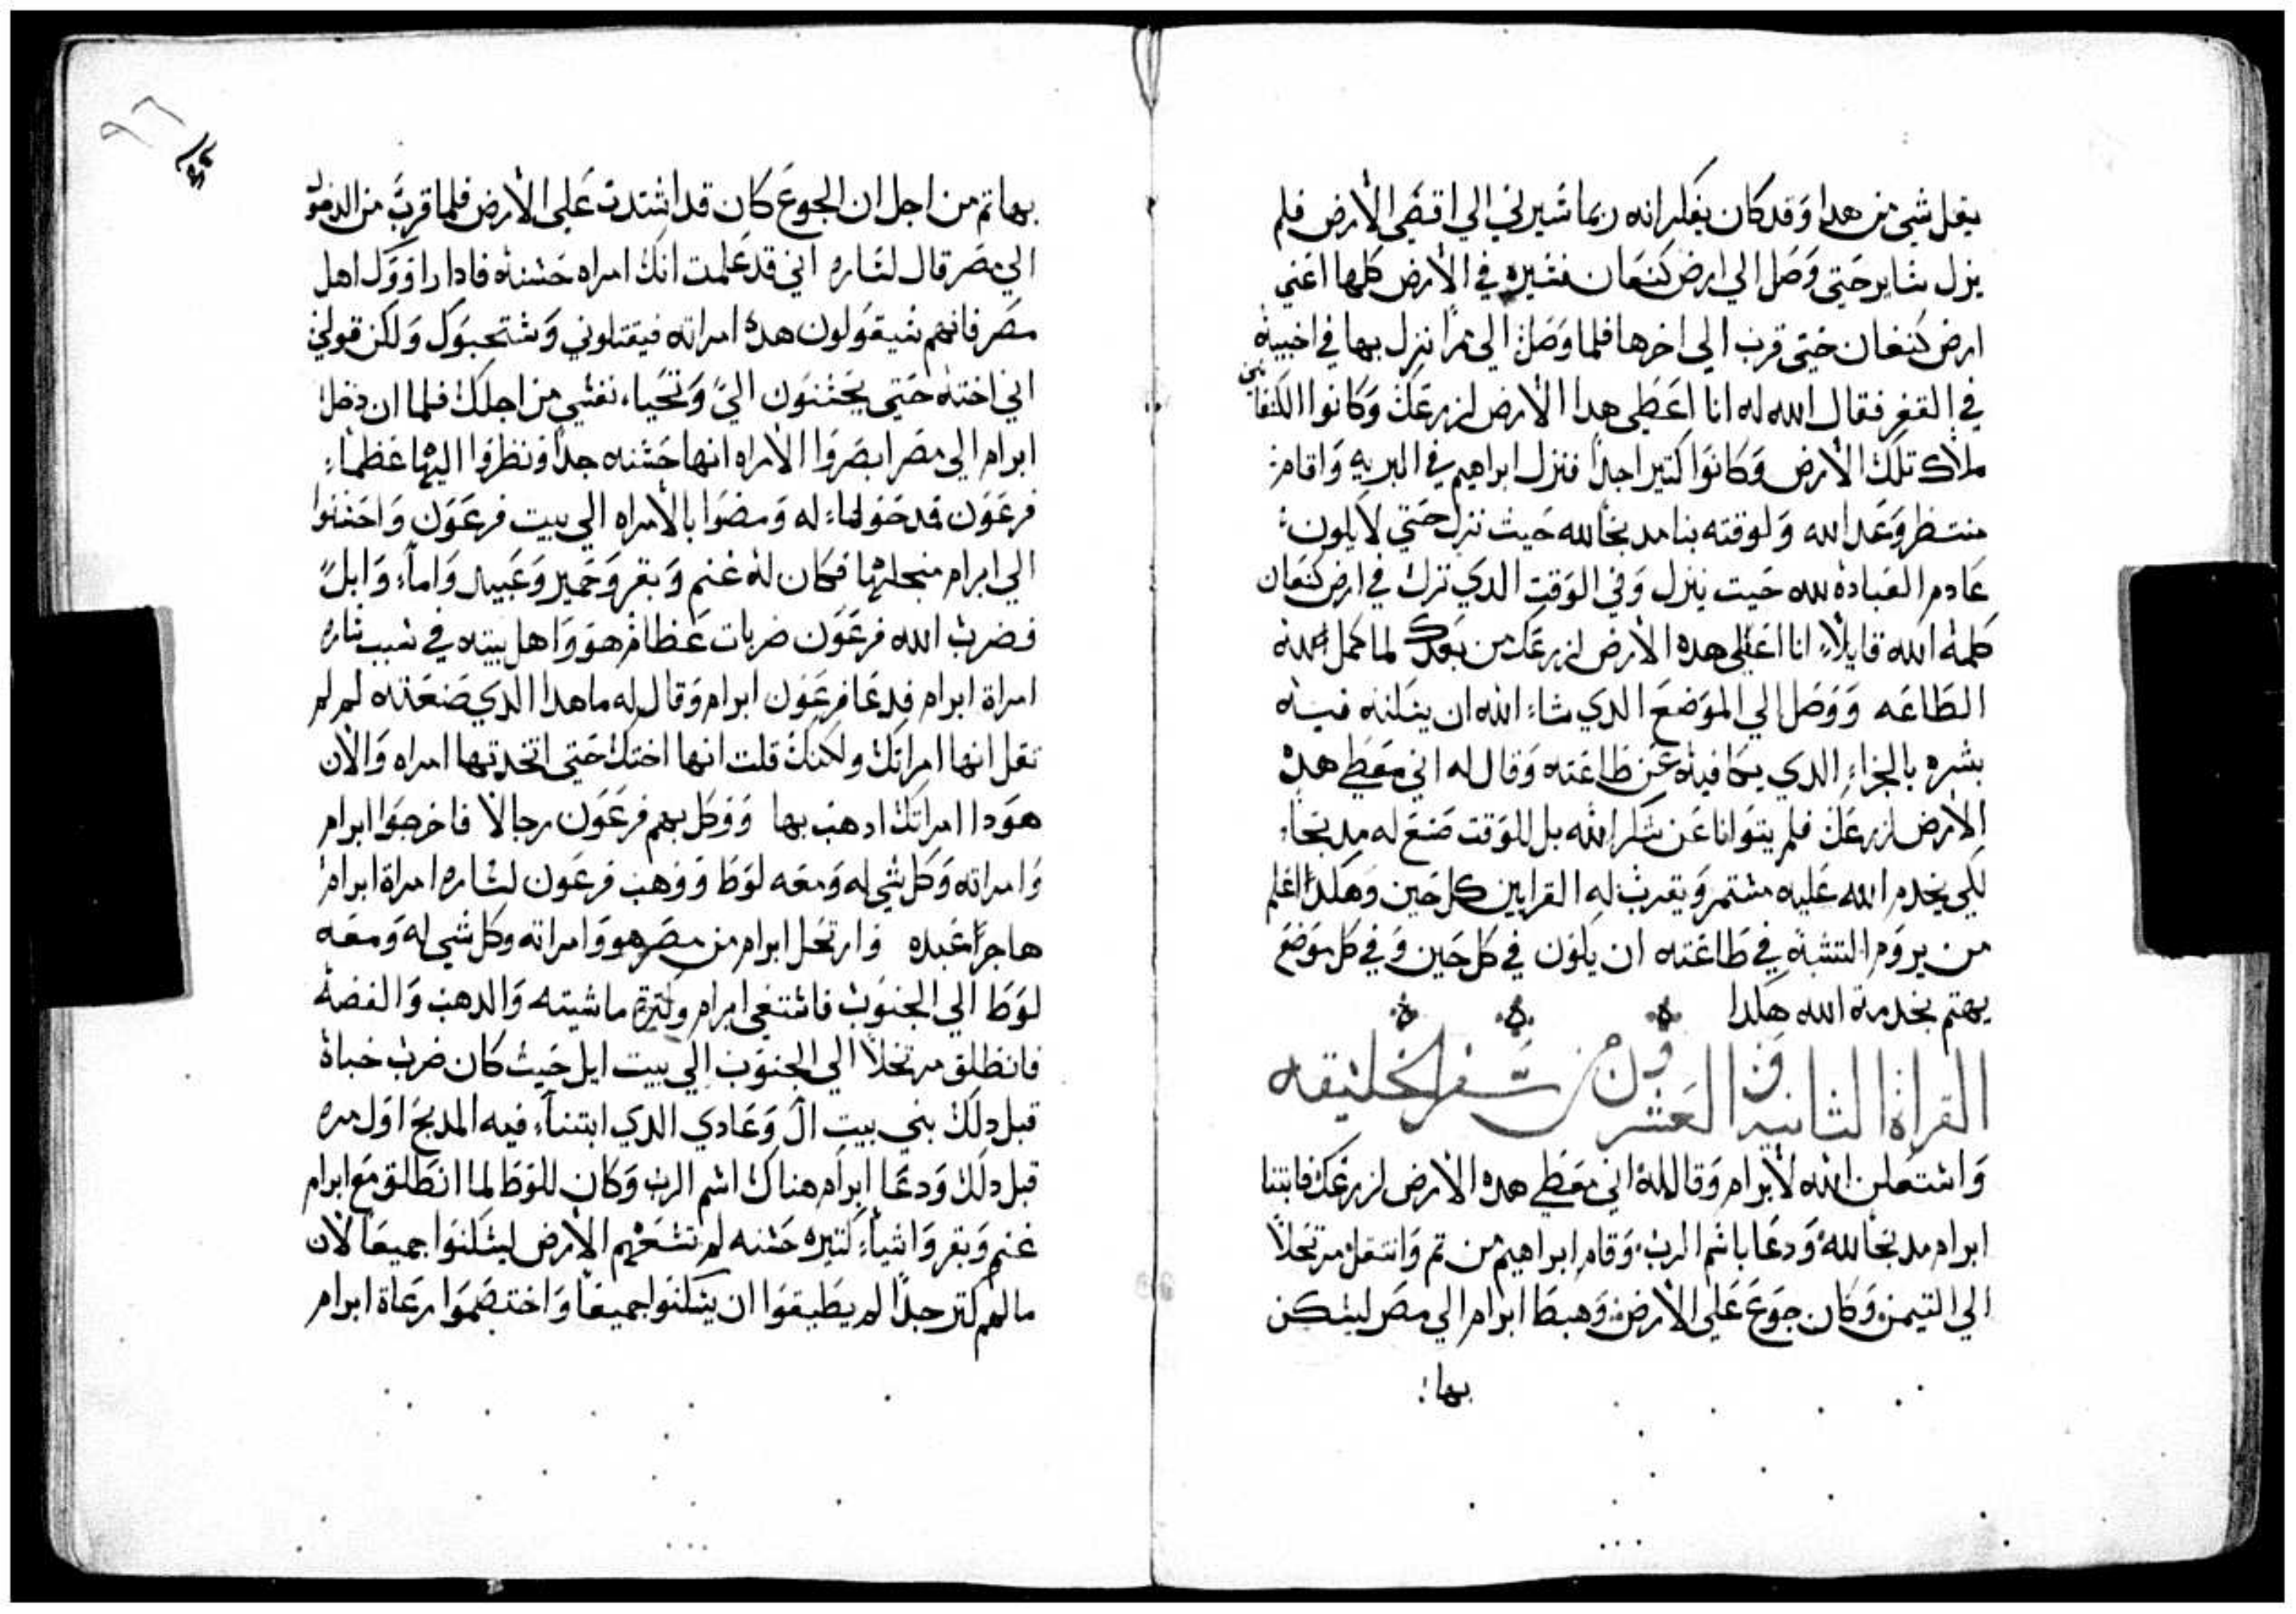 يقل شي من هدا وقد كان يفكر انه ربما سيرني الي اقصي الارض فلم
يزل سايرحتي وصل الي ارض كنعان فسيره في الارض كلها اعني
ارض كنعان حتي قرب الي اخرها فلما وصل الي ممرا نزل بها في اخبيته
في القفر فقال الله له انا اعطي هدا الارض لزرعك وكانوا الكنعانين
ملاك تلك الارض وكانوا كتير اجدا فنزل ابراهيم في البريه واقام
منتظر وعد الله ولوقته بنا مدبحا لله حيث نزل حتي لا يكون
عادم العباده لله حيت ينزل وفي الوقت الدي نزل في ارض كنعان
كلمه الله قايلا انا اعطي هده الارض لزرعك من بعدك لما كمل الله
الطاعه ووصل الي الموضع الدي شاء الله ان يسكنه فيه
بشره بالجزاء الدي يكافيه عن طاعته وقال له اني معطي هده
الارض لزرعك فلم يتوانا عن شكر الله بل للوقت صنع له مدبحا
لكي يخدم الله عليه مستمر ويقرب له القرابين كل حين وهكدا اعلم
من يروم التشبه في طاعته ان يكون في كل حين وفي كل موضع
يهتم بخدمة الله هكدا
القراة الثانيه والعشرون من سفر الخليقه
واستعلن الله لابرام وقال له اني معطي هده الارض لزرعك فابتنا
ابرام مدبحا لله ودعا باسم الرب وقام ابراهيم من تم وانتقل مرتحلا
الي التيمن وكان جوع علي الارض وهبط ابرام الي مصر ليسكن
بها
بها تم من اجل ان الجوع كان قد اشتدت علي الارض فلما قرب من الدخول
الي مصر قال لساره اني قد علمت انك امراه حسنه فادا راووك اهل
مصر فانهم سيقولون هده امراته فيقتلوني ويستحيوك ولكن قولي
اني اخته حتي يحسنون الي وتحيا نفسي من اجلك فلما ان دخل
ابرام الي مصر ابصروا الامراه انها حسنه جدا ونظروا اليها عظماء
فرعون فمدحوها له ومضوا بالامراه الي بيت فرعون واحسنوا
الي ابرام منجلها فكان له غنم وبقر وحمير وعبيد واماء وابل
فضرب الله فرعون ضربات عظام هو واهل بيته في سبب ساره
امراة ابرام فدعا فرعون ابرام وقال له ما هدا الدي صنعته لم لم
تقل انها امراتك ولكنك قلت انها اختك حتي اتخدتها امراه والان
هودا امراتك ادهب بها ووكل بهم فرعون رجالا فاخرجوا ابرام
وامراته وكل شي له ومعه لوط ووهب فرعون لساره امراة ابرام
هاجر عبده وارتحل ابرام من مصر هو وامراته وكل شي له ومعه
لوط الي الجنوب فاستغني ابرام وكترة ماشيته والدهب والفضه
فانطلق مرتحلا الي الجنوب الي بيت ايل حيث كان ضرب خباه
قبل دلك بني بيت ال وعادي الدي ابتنا فيه المدبح اول مره
قبل دلك ودعا ابرام هناك اسم الرب وكان للوط لما انطلق مع ابرام
غنم وبقر واشياء كتيره حسنه لم تسعهم الارض ليسكنوا جميعا لان
مالهم كتر جدا لم يطيقوا ان يسكنوا جميعا واختصموا رعاة ابرام